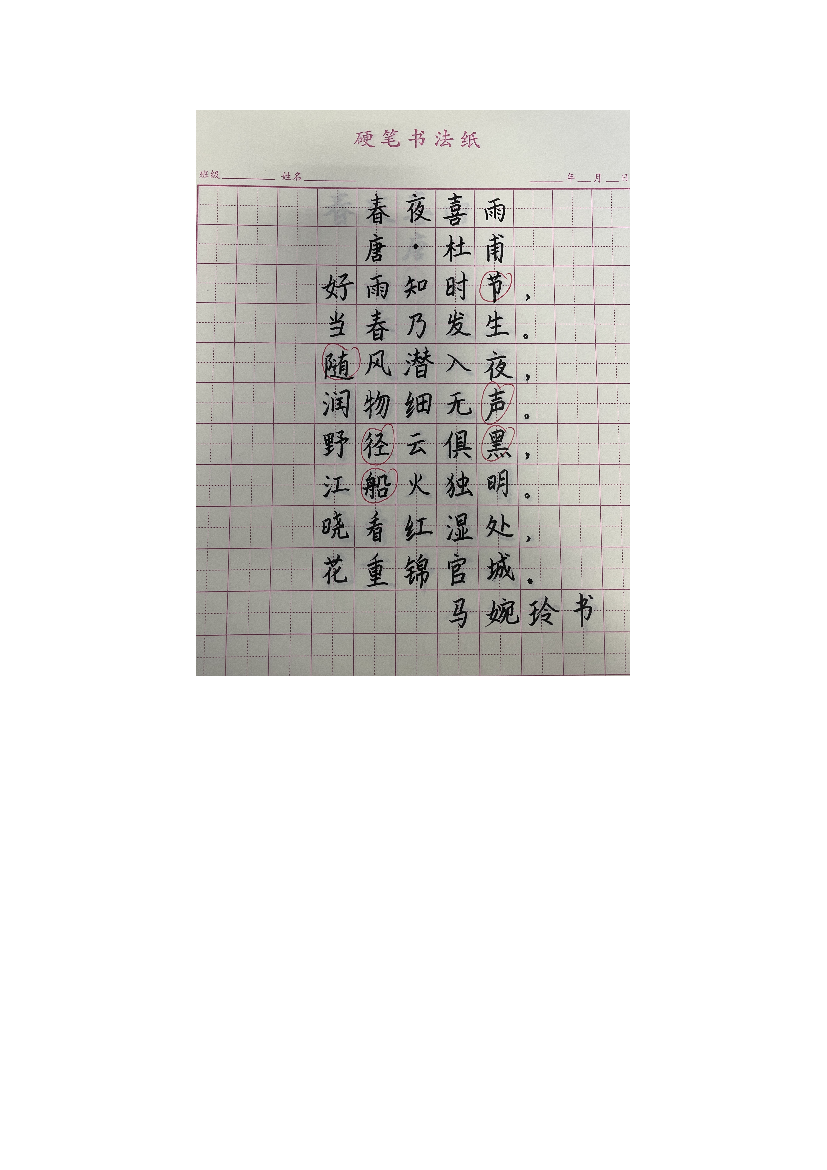 硬笔书法纸
班级 姓名 年 月
春夜喜雨
唐·杜甫
好雨知时节，
当春乃发生。
随风潜入夜，
润物细无声。
野径云俱黑，
江船火独明。
晓看红湿处，
花重锦官城。
马婉玲书